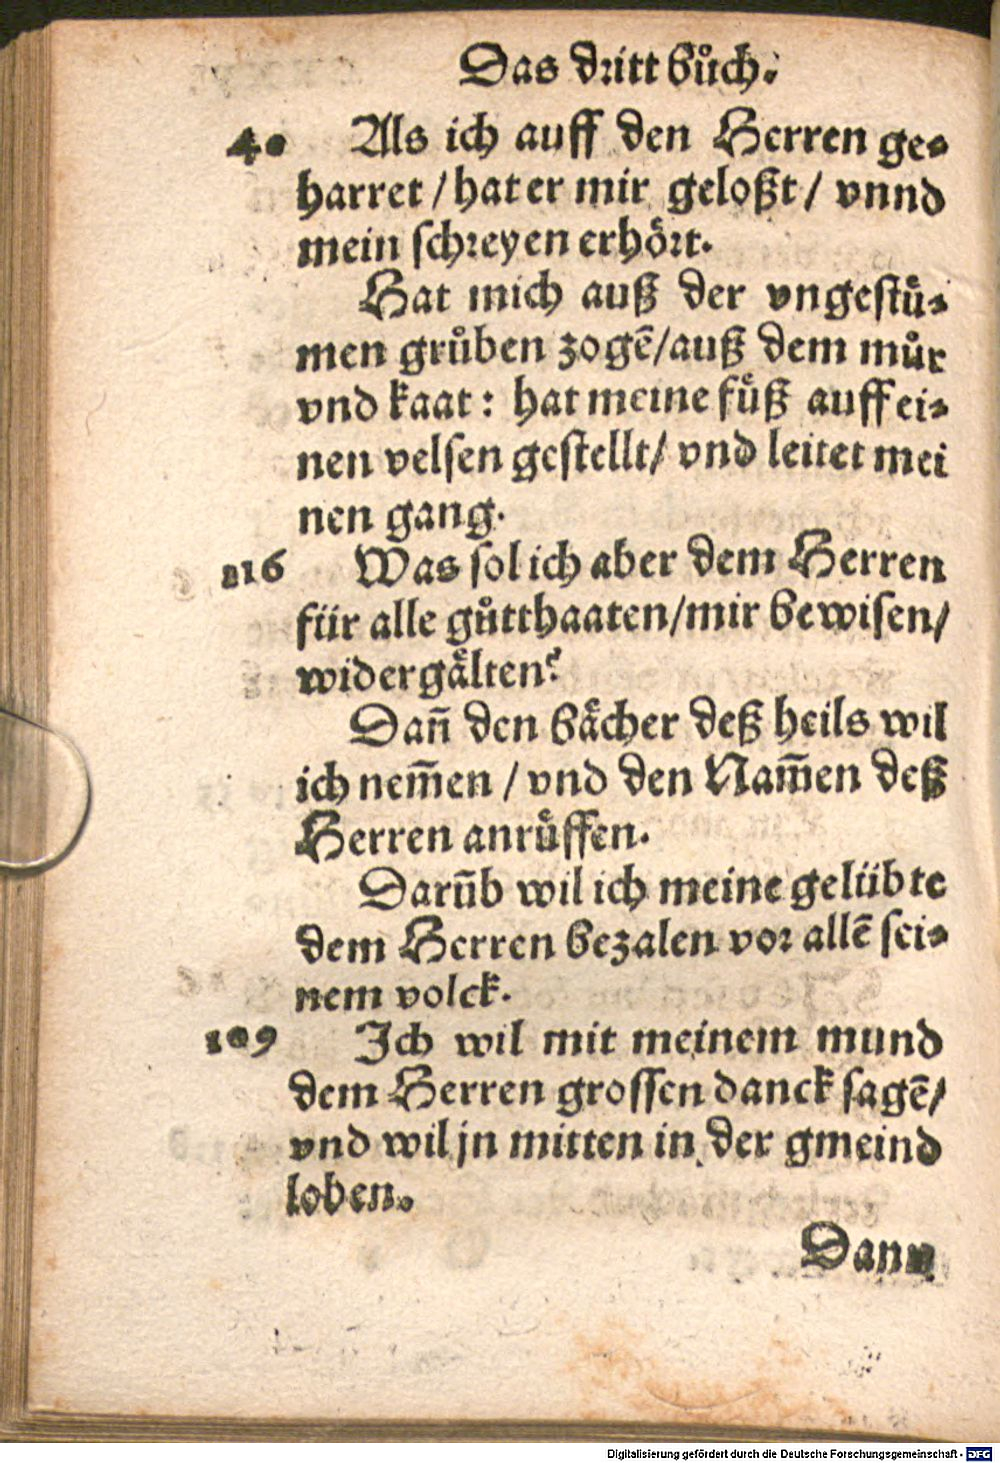 Das dritt bůch.
40 Als ich auff den Herren ge-
harret / hat er mir geloßt / vnnd
mein schreyen erhört.
Hat mich auß der vngestuͤ-
men grůben zogẽ/auß dem můr
vnd kaat: hat meine fuͤß auff ei-
nen velsen gestellt/ vnd leitet mei
nen gang.
116 Was sol ich aber dem Herren
für alle gůtthaaten/mir bewisen/
widergaͤlten?
Dañ den baͤcher deß heils wil
ich nem̃en / vnd den Nam̃en deß
Herren anruͤffen.
Darũb wil ich meine gelübte
dem Herren bezalen vor allẽ sei-
nem volck.
109 Ich wil mit meinem mund
dem Herren grossen danck sagẽ/
vnd wil jn mitten in der gmeind
loben.
Dann
Digitalisierung gefördert durch die Deutsche Forschungsgemeinschaft - DFG